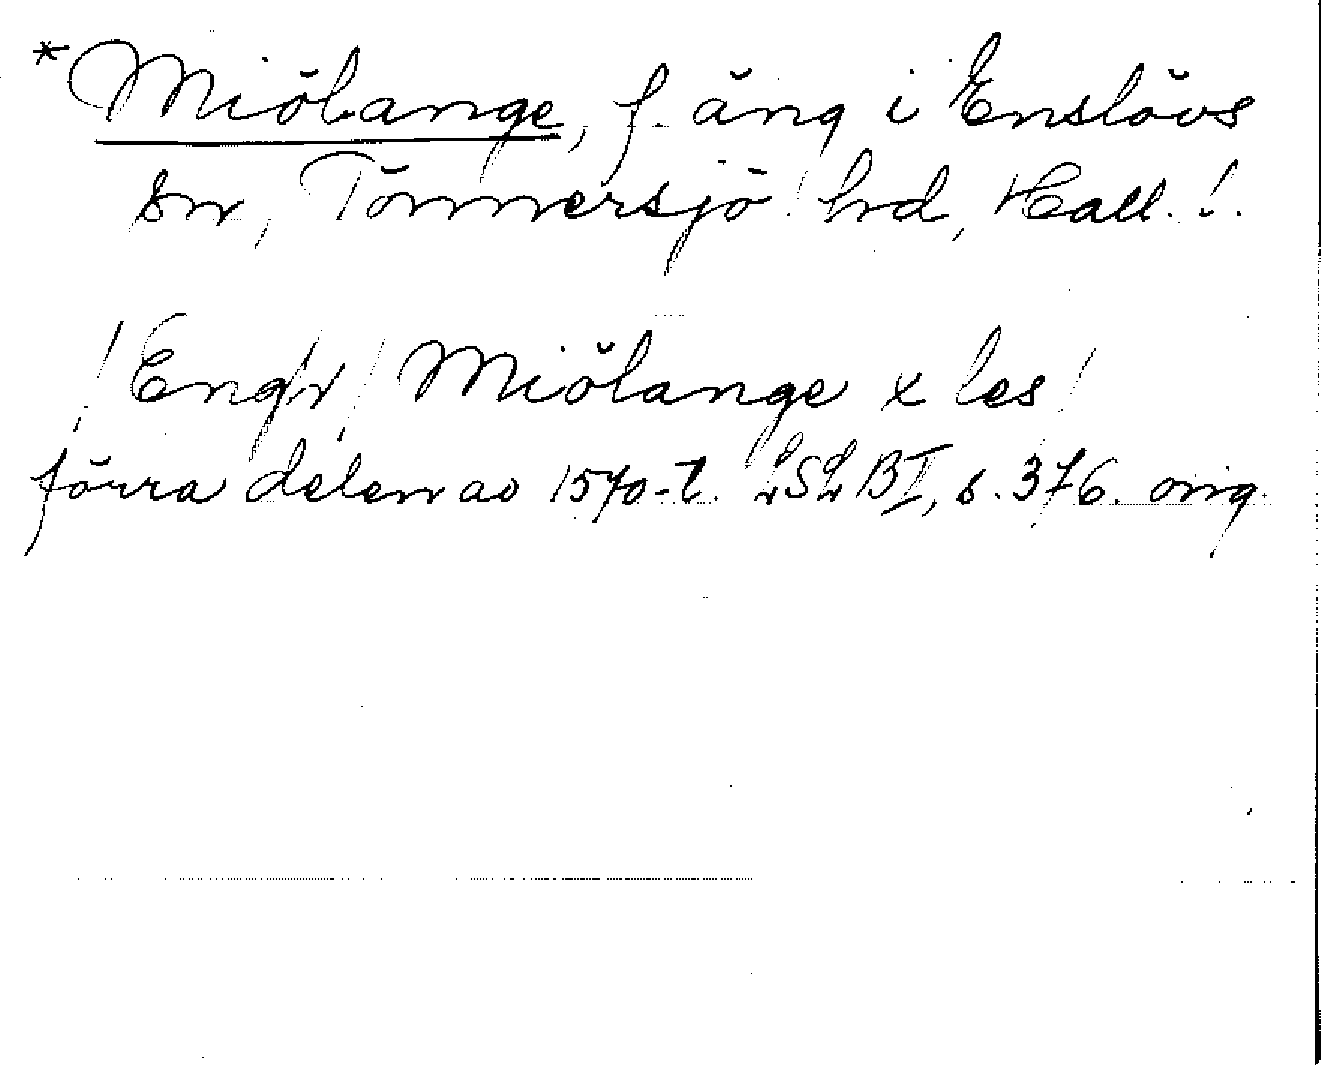 *Miölange, f. äng i Enslövs
sn, Tönnersjö hd, Hall.!
/Eng/r/ Miölange x les/
förra delen av 1570-t. LSLBI, s. 376. orig.